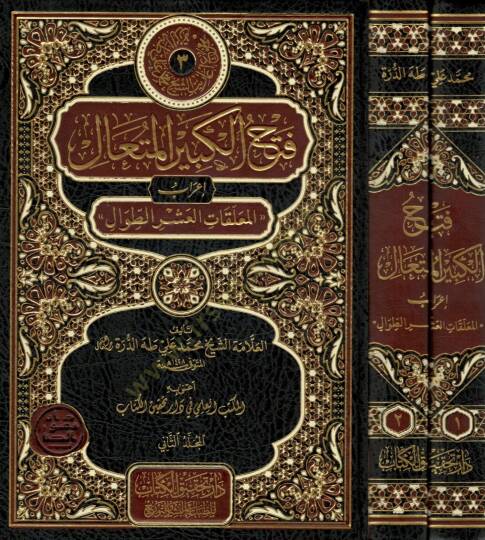 ٣
فتح الكبير المتعال
إعراب
«المعلقات العشر الطوال»
تأليف
العلامة الشيخ محمد علي طه الدرة
المتوفى
اعتنى به
المكتب العلمي في دار تحقيق الكتاب
المجلد الثاني
دار تحقيق الكتاب
محمد علي طه الدرة
فتح
الكبير المتعال
إعراب
«المعلقات العشر الطوال»
٢
١
دار تحقيق الكتاب